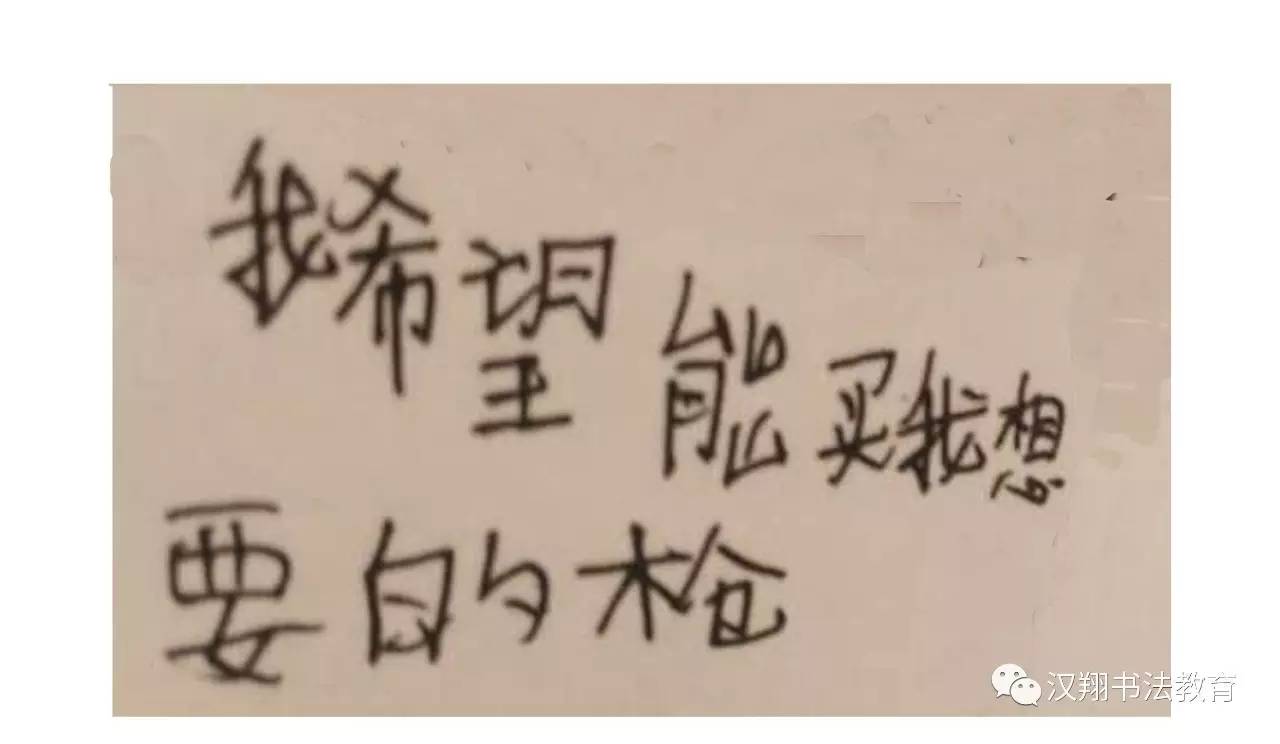 我希望能买我想
要的枪
汉翔书法教育